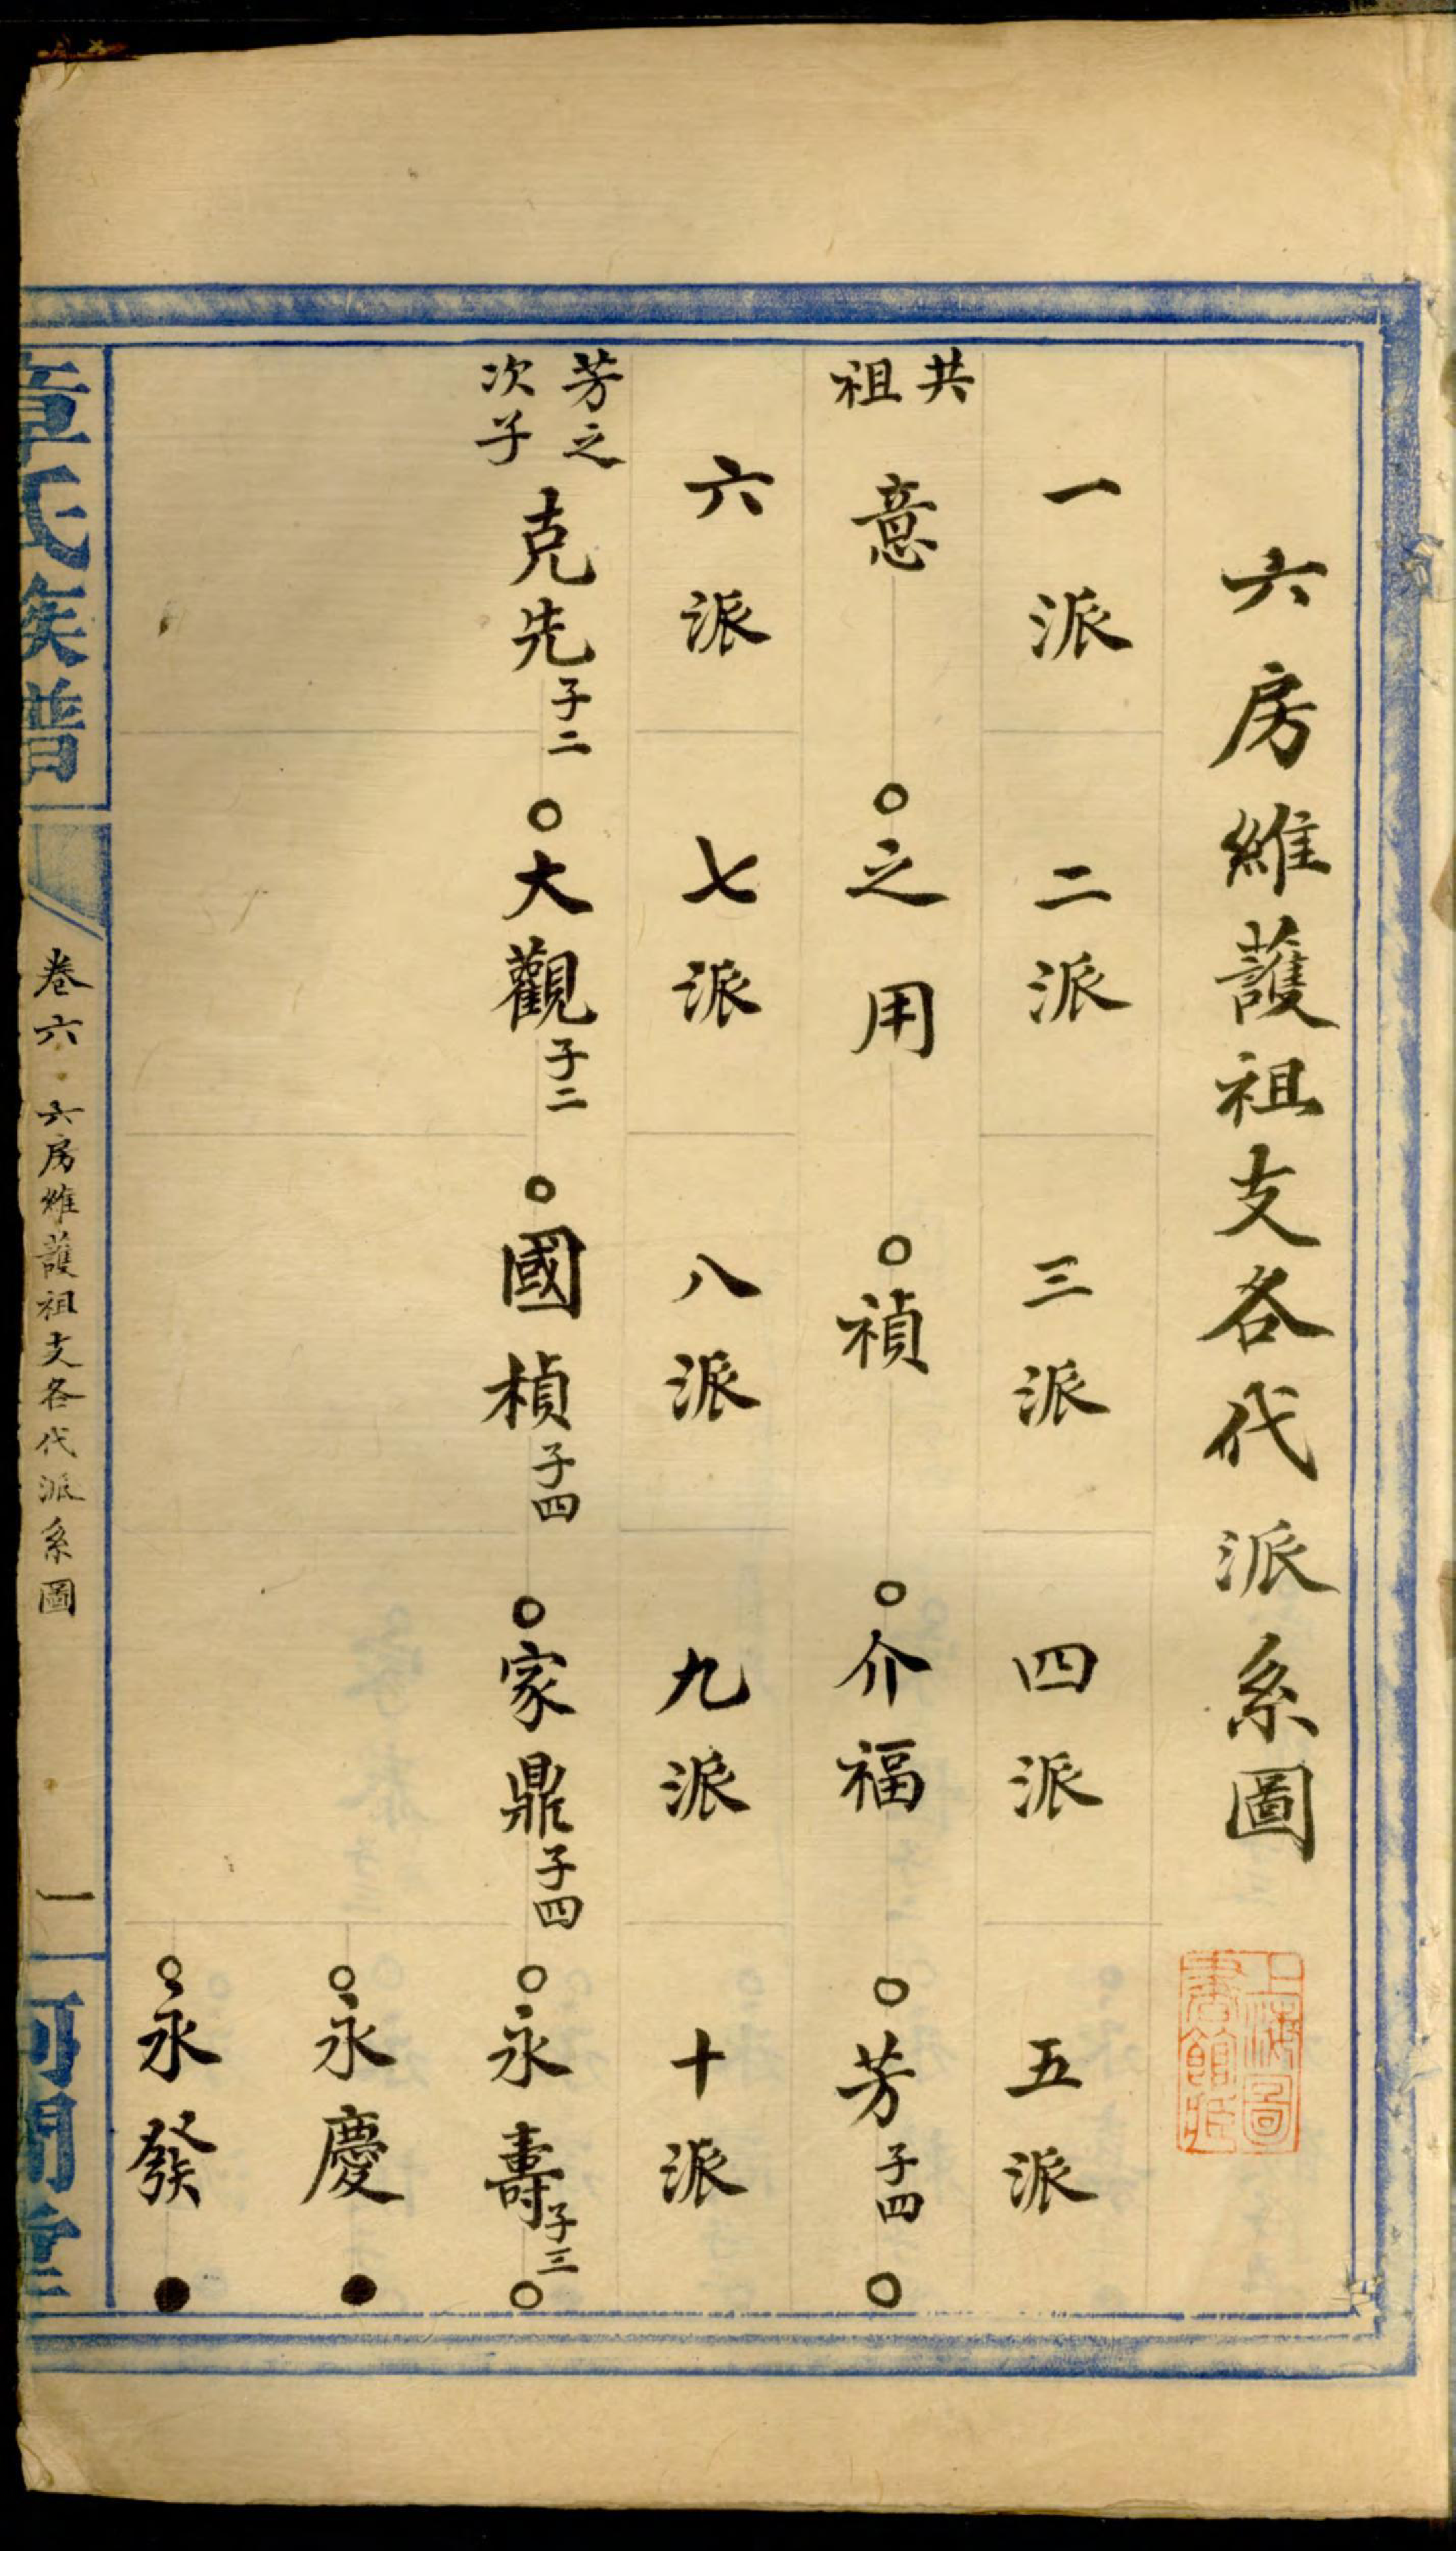 六房維護祖支各代派系圖
上海圖
書館藏
一派 二派 三派 四派 五派
共祖
意 之用 禎 介福 芳 子四
六派 七派 八派 九派 十派
芳之
次子
克先 子二 大觀 子二 國楨 子四 家鼎 子四 永壽 子三
永慶
永發
章氏族譜 卷六 六房維護祖支各代派系圖 一 河間堂